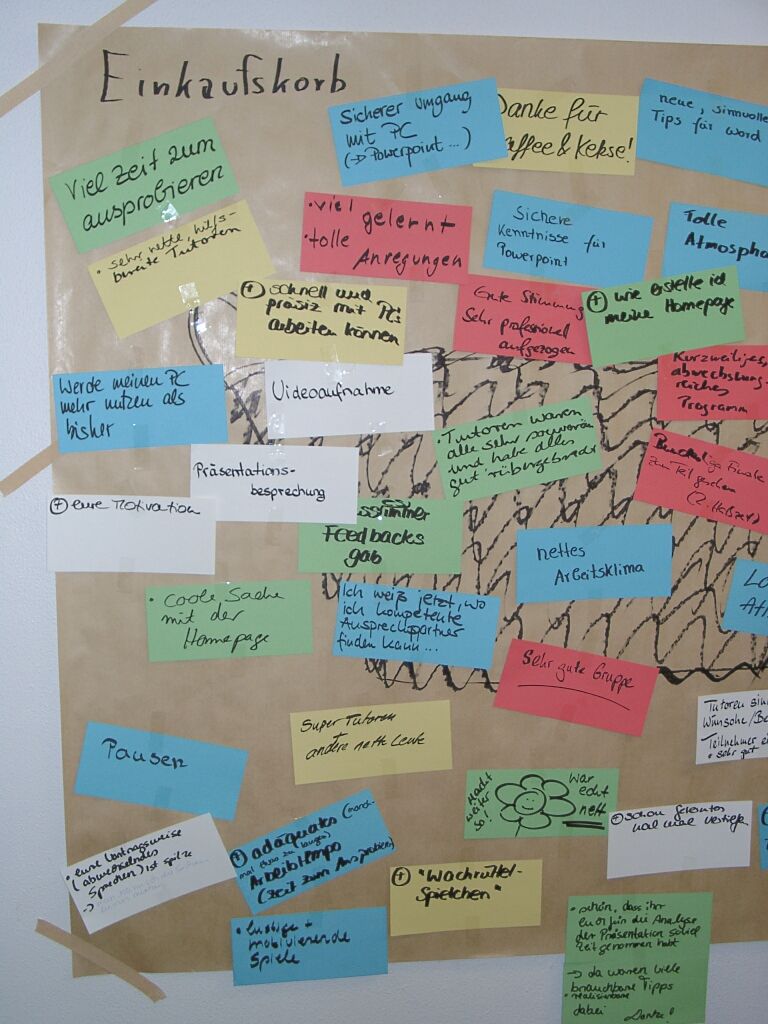 Einkaufskorb
Sicherer Umgang
mit PC
(→ Powerpoint ...)
Danke für
Kaffee & Kekse!
neue, sinnvolle
Tips für Word
Viel Zeit zum
ausprobieren
• sehr nette, hilfs-
bereite Tutoren
• viel gelernt
• tolle
Anregungen
Sichere
Kenntnisse für
Powerpoint
Tolle
Atmosphä
+ schnell und
präziz mit PC's
arbeiten können
Gute Stimmung
Sehr professionell
aufgezogen
+ wie erstelle ich
meine Homepage
Kurzweiliges,
abwechslung-
reiches
Programm
Werde meinen PC
mehr nutzen als
bisher
Videoaufnahme
• Tutoren waren
alle sehr souverän
und habe alles
gut rübergebracht
Bundesliga Finale
zum Teil gesehen
(2. Halbzeit)
Präsentations-
besprechung
+ eure Motivation
Feedbacks
gab
nettes
Arbeitsklima
• coole Sache
mit der
Homepage
Ich weiß jetzt, wo
ich kompetente
Ansprechpartner
finden kann ...
Sehr gute Gruppe
Tutoren sin
Wünsche/Be
Teilnehmer e
• sehr gut
Super Tutoren
andere nette Leute
Pausen
Macht
weiter
so!
War
echt
nett
+ schon gekonntes
noch mal vertiefe
• eure Vortragsweise
(abwechselndes
Sprechen) ist spitze
+ adäquates (manch-
mal etwas zu langes)
Arbeitstempo
(Zeit zum Ausprobieren)
+ "Wachrüttel-
Spielchen"
• lustige +
mobilisierende
Spiele
• schön, dass ihr
euch für die Analyse
der Präsentation soviel
Zeit genommen habt
→ da waren viele
brauchbare Tipps
• realisierbare
dabei Danke!